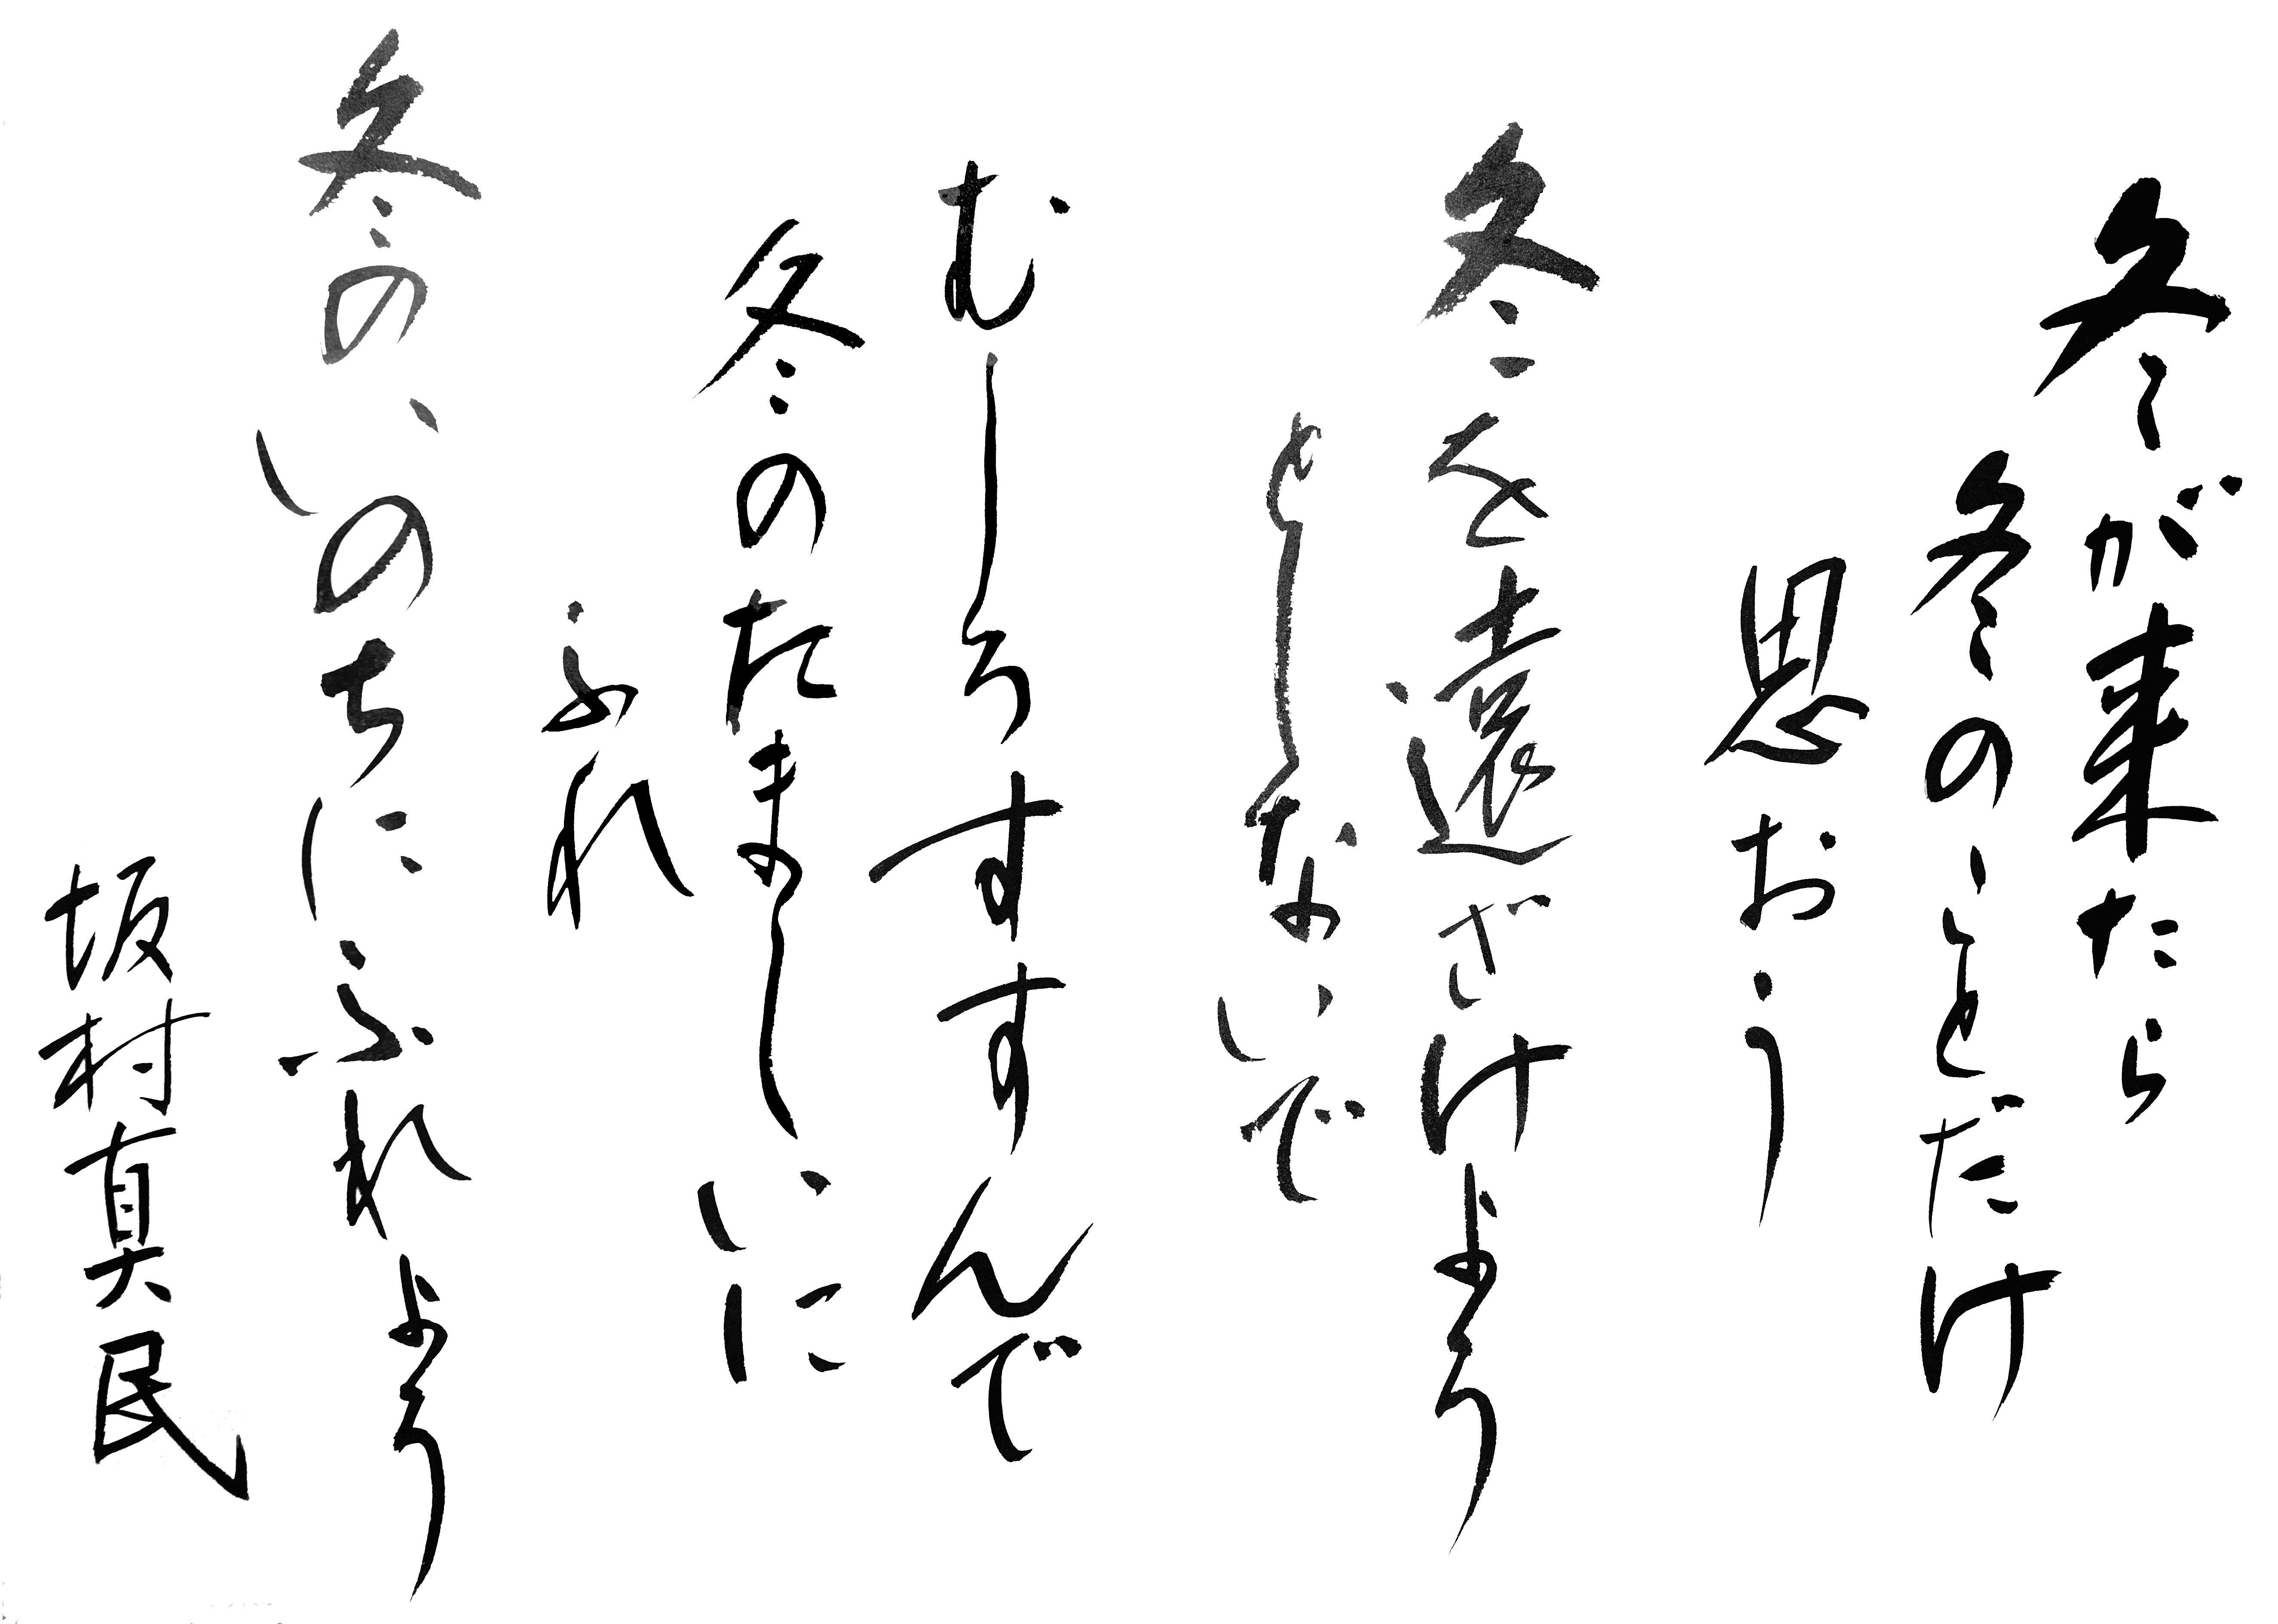 冬が来たら
冬のことだけ
思おう
冬を遠ざけよう
としないで
むしろすすんで
冬のたましいに
ふれ
冬のいのちにふれよう
坂村真民